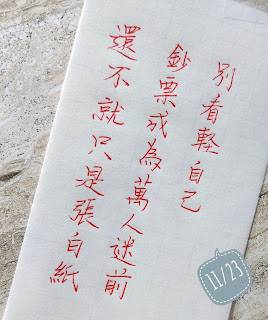 別看輕自己
鈔票成為萬人迷前
還不就只是張白紙
11/23